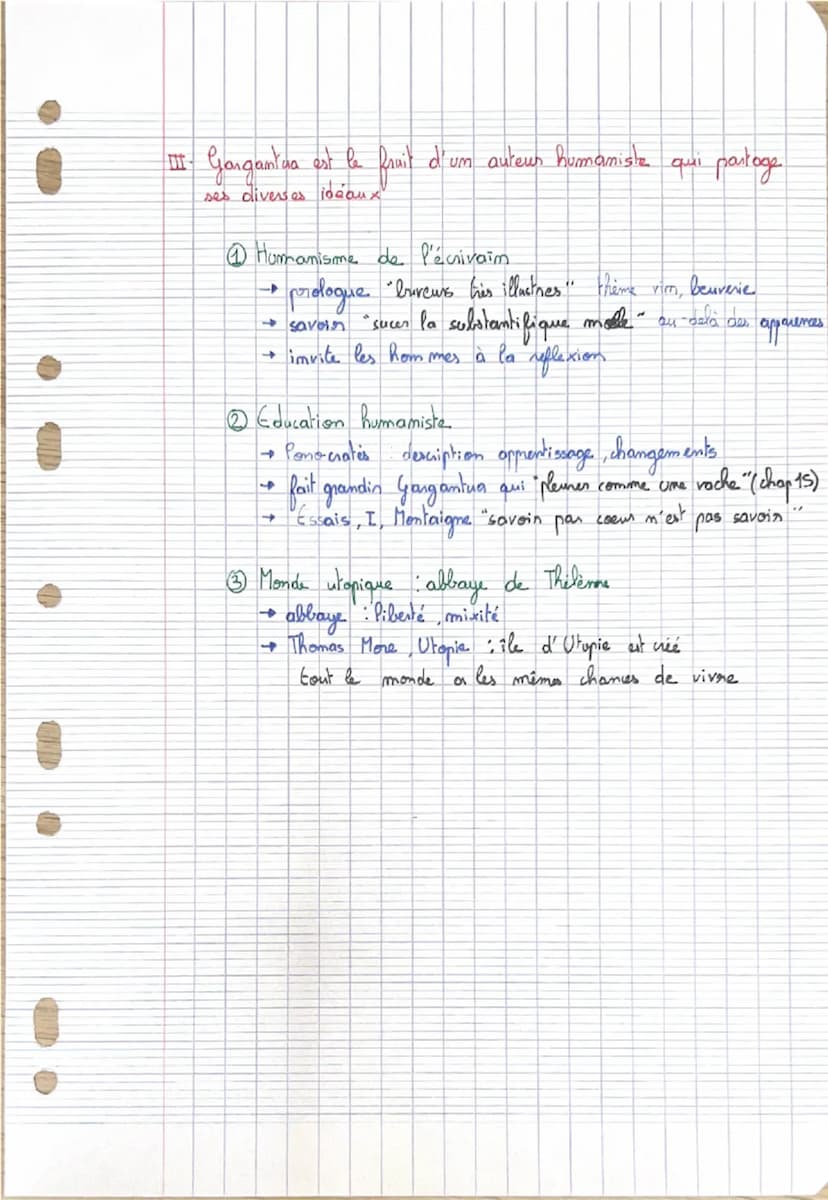 III. Gargantua est le fruit d'un auteur humaniste qui partage
ses diverses idéaux
① Humanisme de l'écrivain
→ prologue "buveurs très illustres" thème vin, beuverie
→ savoir "sucer la substantifique molle" au-delà des apparences
→ invite les hommes à la réflexion
② Education humaniste
→ Ponocratès : description apprentissage, changements
→ fait grandir Gargantua qui "pleurer comme une vache" (chap 15)
→ Essais, I, Montaigne "savoir par coeur n'est pas savoir"
③ Monde utopique : abbaye de Thélème
→ abbaye : liberté, mixité
→ Thomas More, Utopie : île d'Utopie est créé
tout le monde a les mêmes chances de vivre